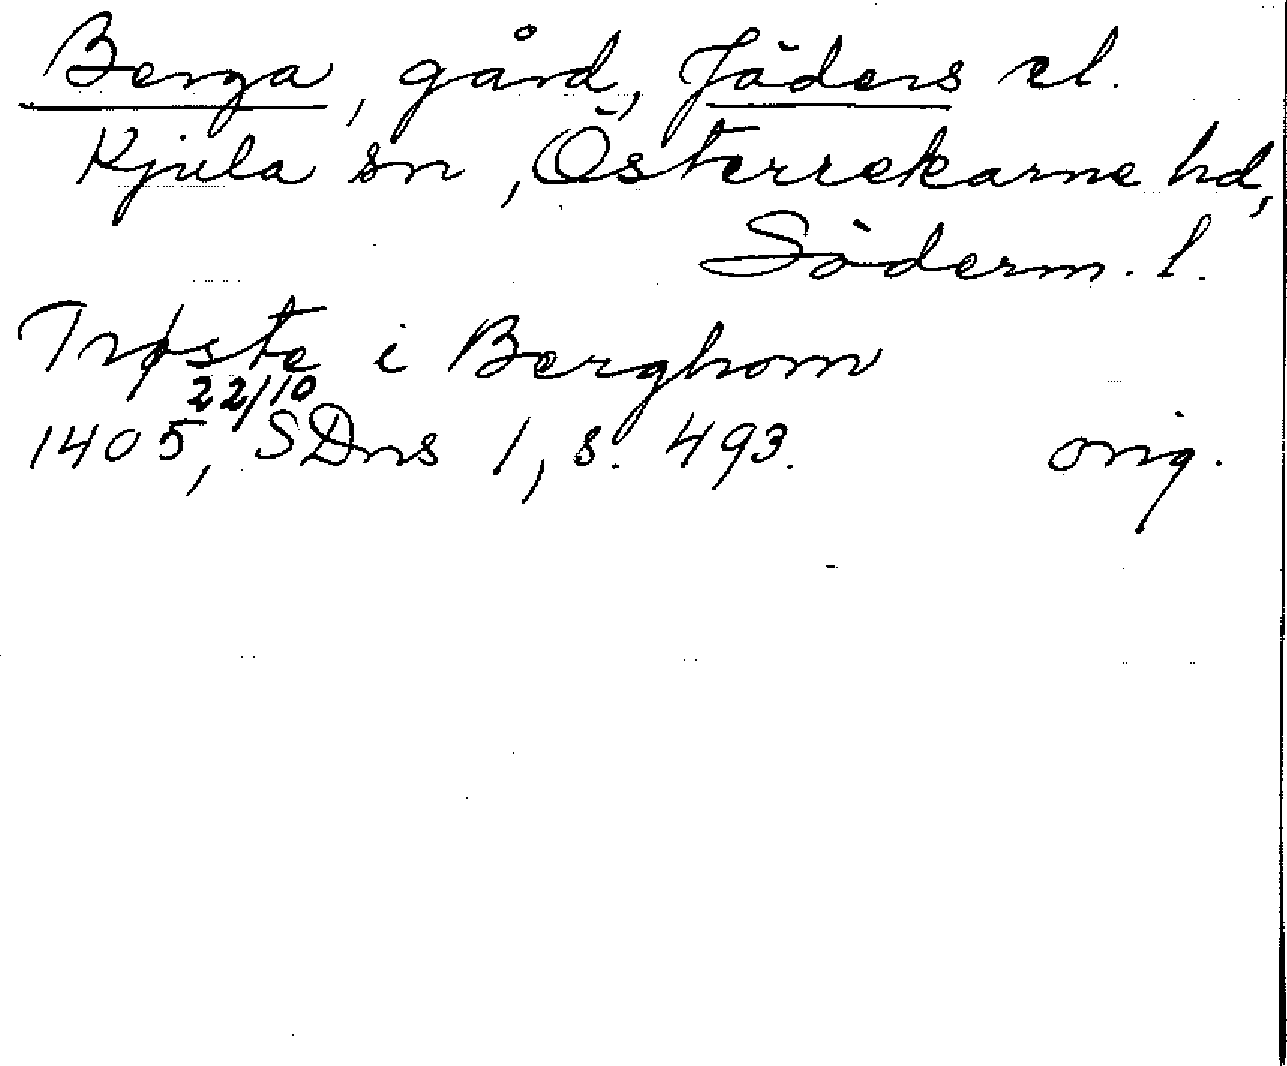 Berga, gård, Jäders el.
Kjula sn, Österrekarne hd,
Söderm. l.
Trøste i Berghom
22/10
1405, SDns 1, s. 493. orig.